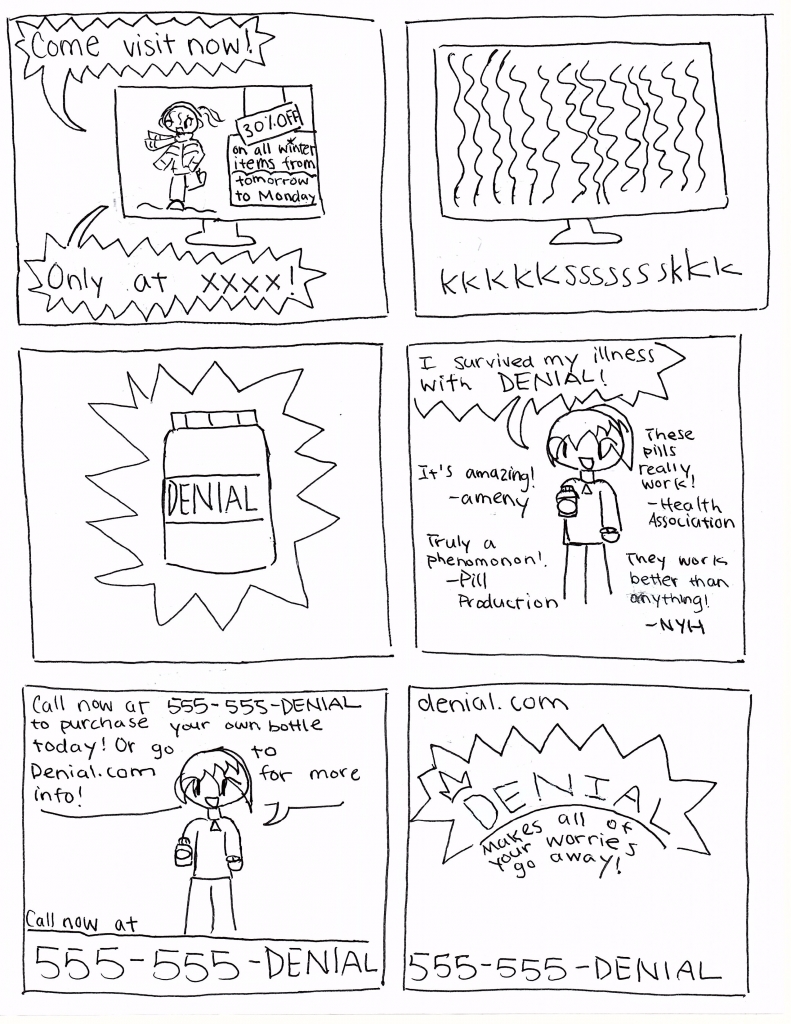 Come visit now!
30% OFF
on all winter
items from
tomorrow
to Monday
Only at xxxx!
KKKKKSSSSSSSKKK
DENIAL
I survived my illness
with DENIAL!
It's amazing!
-ameny
These
pills
really
work!
-Health
Association
Truly a
phenomonon!
-Pill
Production
They work
better than
anything!
-NYH
Call now at 555-555-DENIAL
to purchase your own bottle
today! Or go to
Denial.com for more
info!
Call now at
555-555-DENIAL
denial.com
DENIAL
Makes all of
your worries
go away!
555-555-DENIAL